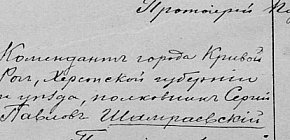 Протоіерей
Комендантъ города Кривой
Рогъ, Херсонской губерніи
и уѣзда, полковникъ Сергій
Павловъ Шамраевскій